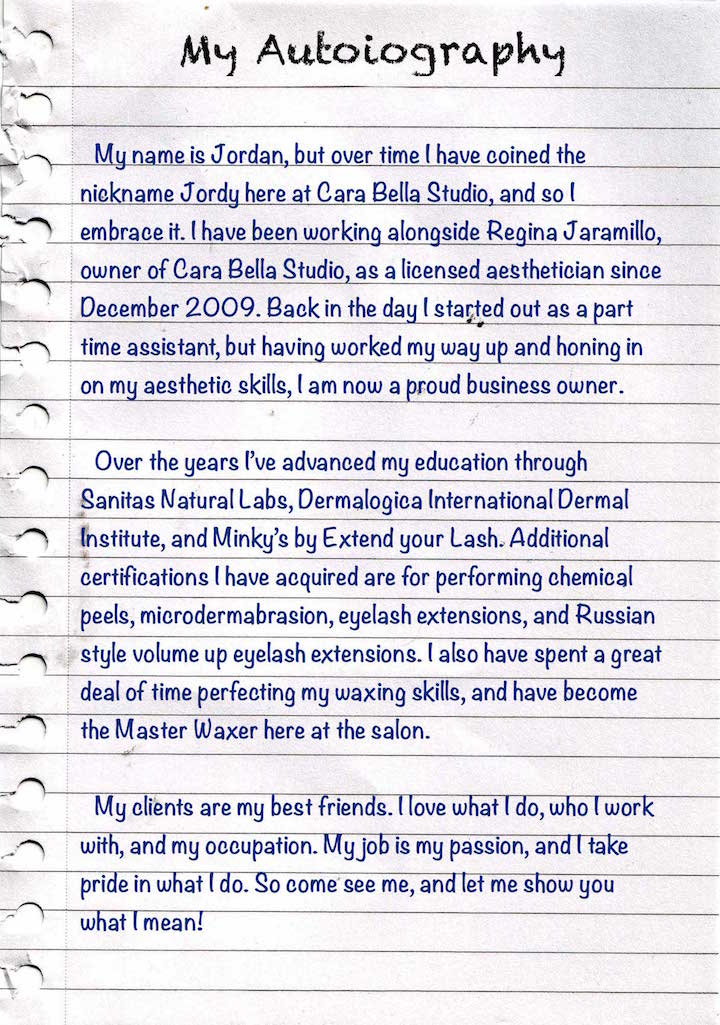 My Autoiography
My name is Jordan, but over time I have coined the
nickname Jordy here at Cara Bella Studio, and so I
embrace it. I have been working alongside Regina Jaramillo,
owner of Cara Bella Studio, as a licensed aesthetician since
December 2009. Back in the day I started out as a part
time assistant, but having worked my way up and honing in
on my aesthetic skills, I am now a proud business owner.
Over the years I've advanced my education through
Sanitas Natural Labs, Dermalogica International Dermal
Institute, and Minky's by Extend your Lash. Additional
certifications I have acquired are for performing chemical
peels, microdermabrasion, eyelash extensions, and Russian
style volume up eyelash extensions. I also have spent a great
deal of time perfecting my waxing skills, and have become
the Master Waxer here at the salon.
My clients are my best friends. I love what I do, who I work
with, and my occupation. My job is my passion, and I take
pride in what I do. So come see me, and let me show you
what I mean!